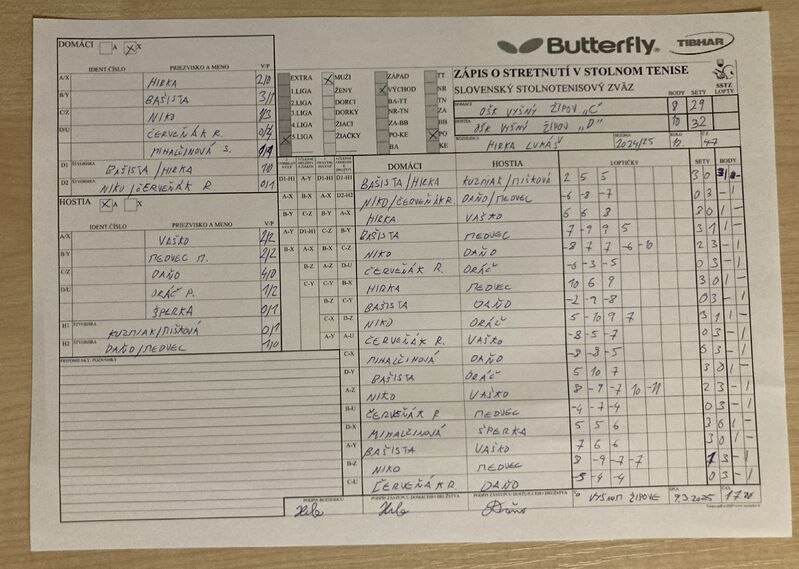 Butterfly
TIBHAR
ZÁPIS O STRETNUTÍ V STOLNOM TENISE
SLOVENSKÝ STOLNOTENISOVÝ ZVÄZ
SSTZ
BODY SETY LOPTY
DOMÁCI OŠK VYŠNÝ ŽIPOV „C" 8 29
HOSTIA OŠK VYŠNÝ ŽIPOV „D" 10 32
HIRKA LUKÁŠ 2024/25 47
DOMÁCI A X
IDENT ČÍSLO PRIEZVISKO A MENO V/P
A/X HIRKA 2/0
B/Y BAŠISTA 3/1
C/Z NIKO 1/3
D/U ČERVEŇÁK R. 0/4
MIHALČINOVÁ S. 1/1
D1 ŠTVORHRA BAŠISTA/HIRKA 1/0
D2 ŠTVORHRA NIKO/ČERVEŇÁK R. 0/1
HOSTIA A X
IDENT ČÍSLO PRIEZVISKO A MENO V/P
A/X VAŠKO 2/2
B/Y MEDVEC M. 2/2
C/Z DAŇO 4/0
D/U ORÁČ P. 1/2
ŠPERKA 0/1
H1 ŠTVORHRA KUZMIAK/MIŠKOVÁ 0/1
H2 ŠTVORHRA DAŇO/MEDVEC 1/0
PRIPOMIENKY, POZNÁMKY
EXTRA MUŽI ZÁPAD TT
1.LIGA ŽENY VÝCHOD NR
2.LIGA DORCI BA-TT TN
3.LIGA DORKY NR-TN ZA
4.LIGA ŽIACI ZA-BB BB
5.LIGA ŽIAČKY PO-KE PO
BA KE
DOMÁCI HOSTIA LOPTIČKY SETY BODY
BAŠISTA/HIRKA KUZMIAK/MIŠKOVÁ 2 5 5 3 0
NIKO/ČERVEŇÁK R DAŇO/MEDVEC -6 -8 -7 0 3 - 1
HIRKA VAŠKO 6 6 8 3 0 1 -
BAŠISTA MEDVEC 7 -9 9 5 3 1 1 -
NIKO DAŇO -8 7 7 -6 -10 2 3 - 1
ČERVEŇÁK R. ORÁČ -6 -3 -5 0 3 - 1
HIRKA MEDVEC 10 6 9 3 0 1 -
BAŠISTA DAŇO -2 -9 -8 0 3 - 1
NIKO ORÁČ 5 -10 9 7 3 1 1 -
ČERVEŇÁK R. VAŠKO -8 -5 -7 0 3 - 1
C-X MIHALČINOVÁ DAŇO -8 -8 -5 0 3 - 1
D-Y BAŠISTA ORÁČ 5 10 7 3 0 1 -
A-Z NIKO VAŠKO 8 -9 -7 10 -11 2 3 - 1
B-U ČERVEŇÁK R MEDVEC -4 -7 -4 0 3 - 1
D-X MIHALČINOVÁ ŠPERKA 5 5 6 3 0 1 -
A-Y BAŠISTA VAŠKO 7 6 6 3 0 1 -
B-Z NIKO MEDVEC 8 -9 -7 -7 1 3 - 1
C-U ČERVEŇÁK R. DAŇO -3 -4 -4 0 3 - 1
PODPIS ROZHODCU PODPIS ZÁSTUPCU DOMÁCEHO DRUŽSTVA PODPIS ZÁSTUPCU HOSŤUJÚCEHO DRUŽSTVA
VYŠNOM ŽIPOVE 9.3.2025